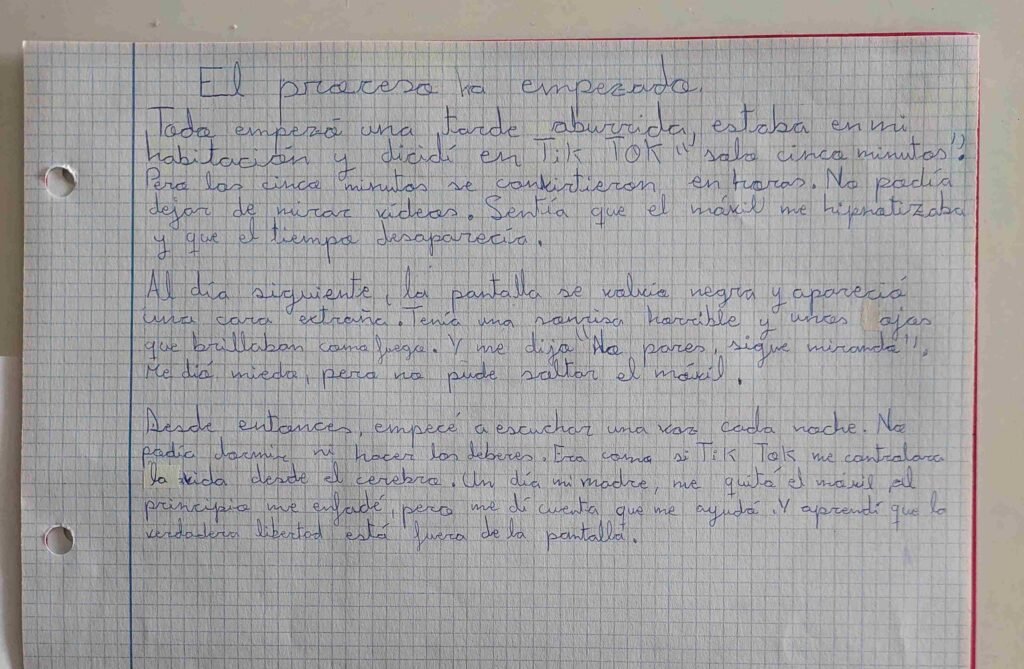 El proceso ha empezado.
Todo empezó una tarde aburrida, estaba en mi
habitación y dicidí en Tik Tok "solo cinco minutos".
Pero los cinco minutos se convirtieron en horas. No podía
dejar de mirar videos. Sentía que el móvil me hipnotizaba
y que el tiempo desaparecía.
Al día siguiente, la pantalla se volvió negra y apareció
una cara extraña. Tenía una sonrisa horrible y unos ojos
que brillaban como fuego. Y me dijo "No pares, sigue mirando".
Me dió miedo, pero no pude soltar el móvil.
Desde entonces, empecé a escuchar una voz cada noche. No
podía dormir ni hacer los deberes. Era como si Tik Tok me controlara
la vida desde el cerebro. Un día mi madre, me quitó el móvil, al
principio me enfadé, pero me di cuenta que me ayudó. Y aprendí que la
verdadera libertad está fuera de la pantalla.